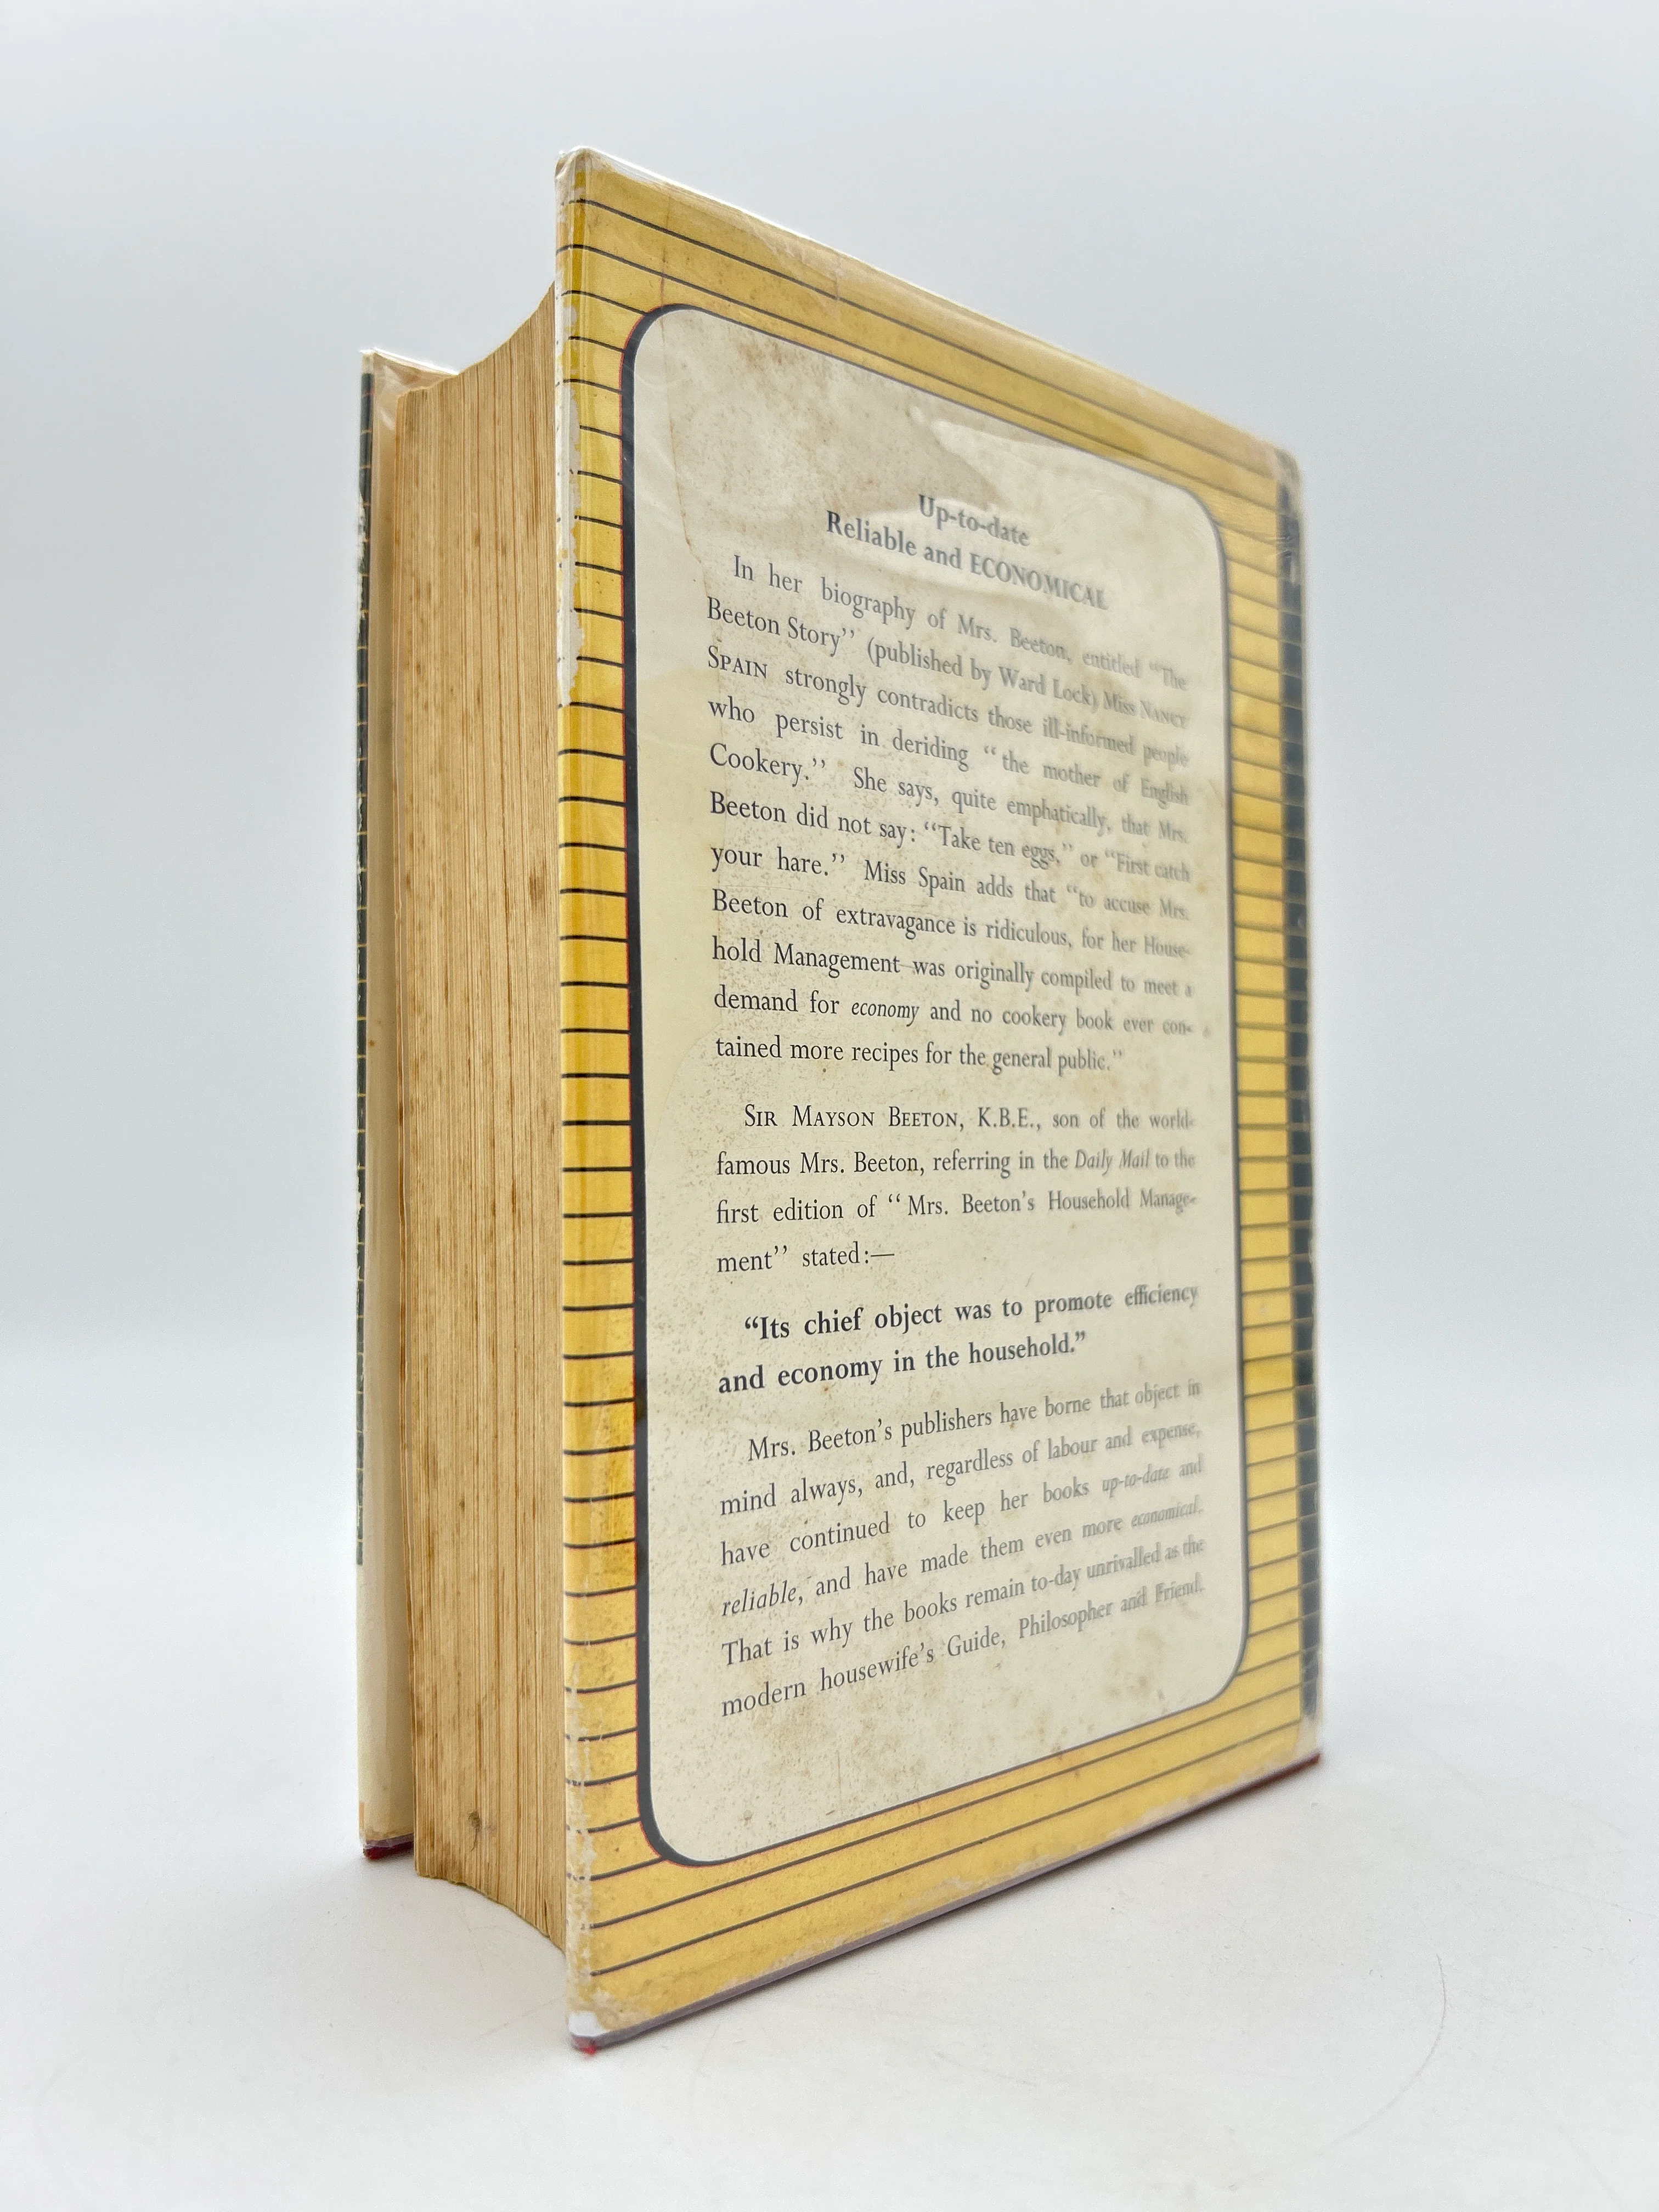 Up-to-date
Reliable and ECONOMICAL
In her biography of Mrs. Beeton, entitled “The
Beeton Story’’ (published by Ward Lock) Miss NANCY
SPAIN strongly contradicts those ill-informed people
who persist in deriding “the mother of English
Cookery.’’ She says, quite emphatically, that Mrs.
Beeton did not say: “Take ten eggs,’’ or “First catch
your hare.’’ Miss Spain adds that “to accuse Mrs.
Beeton of extravagance is ridiculous, for her House-
hold Management was originally compiled to meet a
demand for economy and no cookery book ever con-
tained more recipes for the general public.’’
SIR MAYSON BEETON, K.B.E., son of the world-
famous Mrs. Beeton, referring in the Daily Mail to the
first edition of “Mrs. Beeton’s Household Manage-
ment’’ stated:—
“Its chief object was to promote efficiency
and economy in the household.”
Mrs. Beeton’s publishers have borne that object in
mind always, and, regardless of labour and expense,
have continued to keep her books up-to-date and
reliable, and have made them even more economical.
That is why the books remain to-day unrivalled as the
modern housewife’s Guide, Philosopher and Friend.